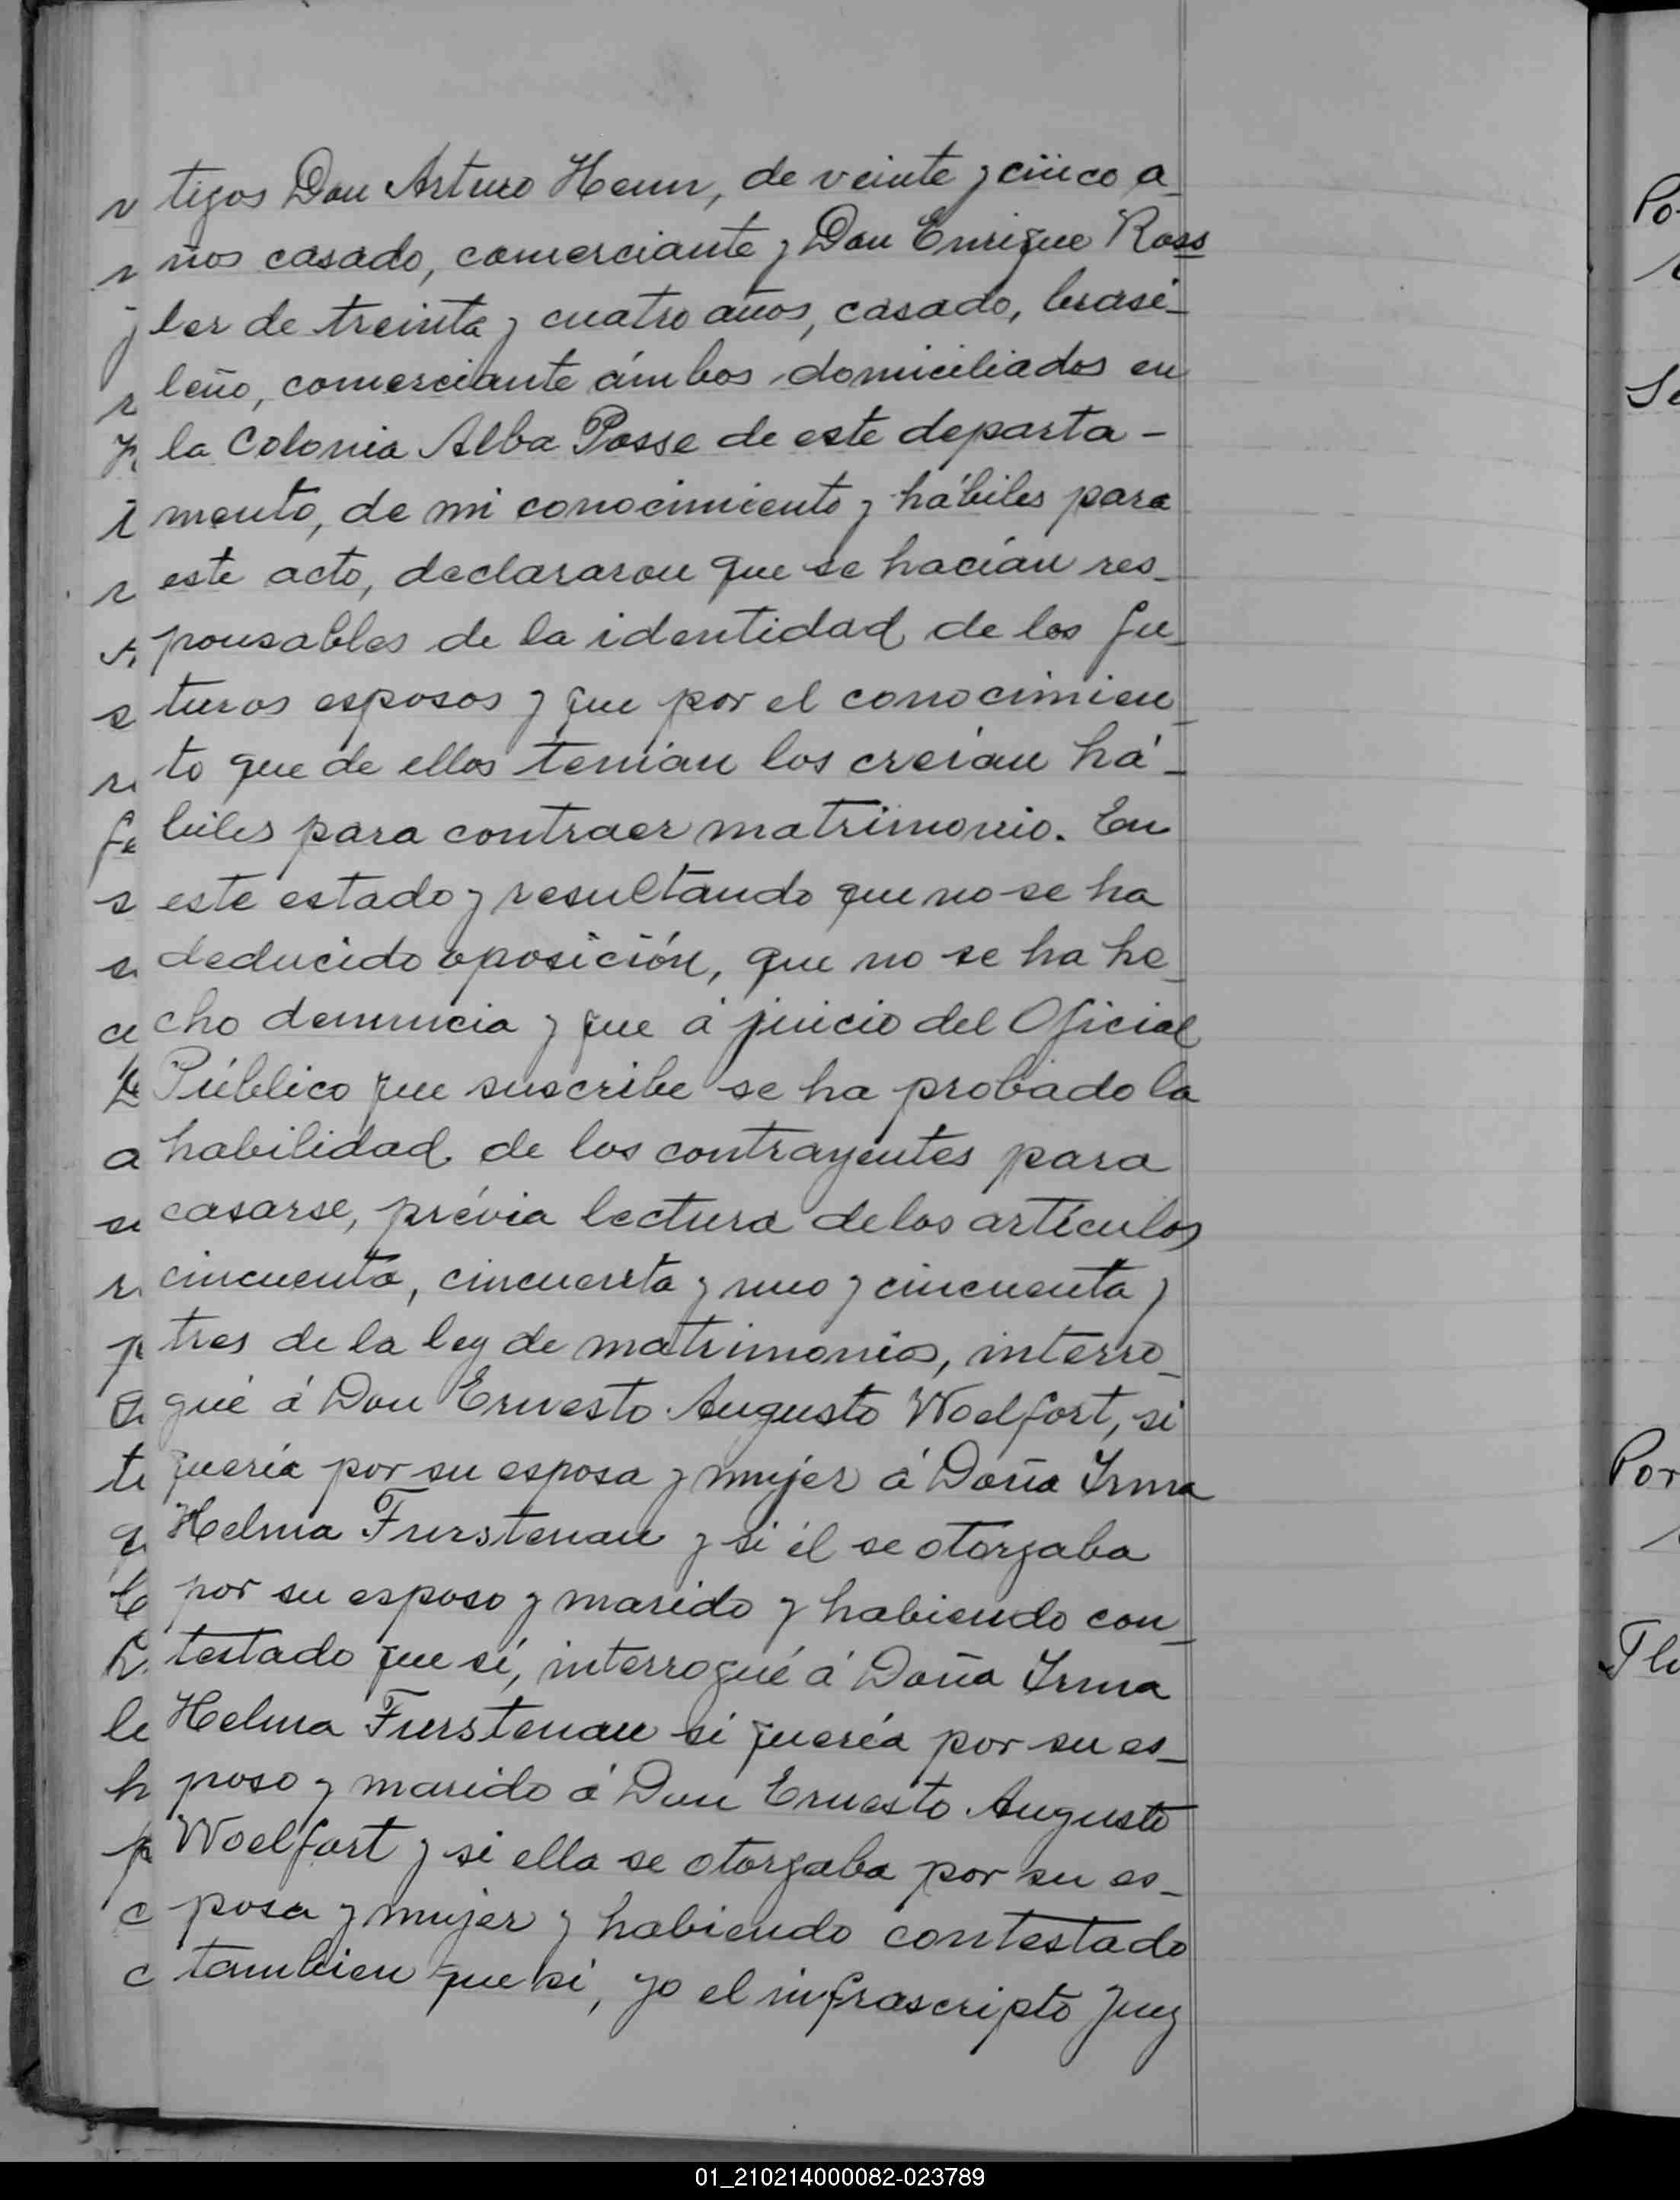 tigos Don Arturo Henn, de veinte y cinco a_
ños casado, comerciante y Don Enrique Ross
ler de treinta y cuatro años, casado, brasi_
leño, comerciante ámbos domiciliados en
la Colonia Alba Posse de este departa-
mento, de mi conocimiento y hábiles para
este acto, declararon que se hacían res_
ponsables de la identidad de los fu_
turos esposos y que por el conocimien_
to que de ellos tenían los creían há_
biles para contraer matrimonio. En
este estado y resultando que no se ha
deducido oposición, que no se ha he_
cho denuncia y que á juicio del Oficial
Público que suscribe se ha probado la
habilidad de los contrayentes para
casarse, prévia lectura de los artículos
cincuenta, cincuenta y uno y cincuenta y
tres de la ley de matrimonio, interro_
gué á Don Ernesto Augusto Woelfort, si
quería por su esposa y mujer á Doña Irma
Helma Furstenau y si él se otorgaba
por su esposo y marido y habiendo con_
testado que sí, interrogué á Doña Irma
Helma Furstenau si quería por su es_
poso y marido á Don Ernesto Augusto
Woelfort y si ella se otorgaba por su es_
posa y mujer y habiendo contestado
tambien que si, yo el infrascripto Juez
Por
01_210214000082-023789